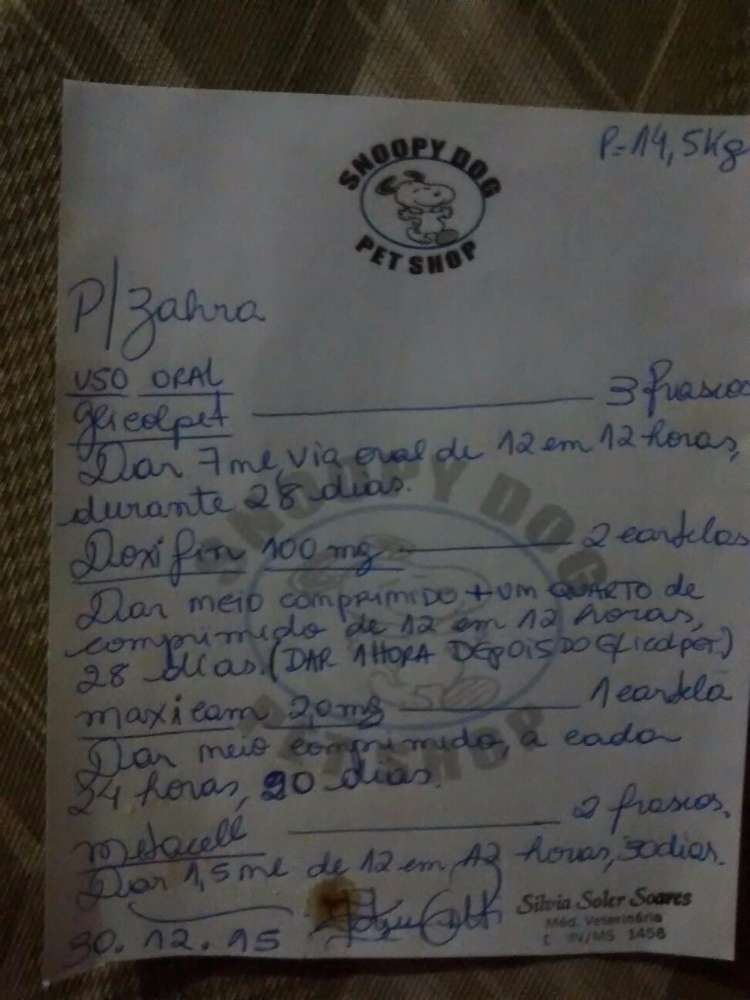 P=14,5Kg
SNOOPY DOG
PET SHOP
P/ Zahra
USO ORAL
Glicolpet 3 frascos
Dar 7ml, via oral de 12 em 12 horas,
durante 28 dias.
Doxifin 100mg 2 cartelas
Dar meio comprimido + um QUARTO de
comprimido de 12 em 12 horas,
28 dias. (DAR 1 HORA DEPOIS DO Glicolpet.)
maxicam 2,0mg 1 cartela
Dar meio comprimido, a cada
24 horas, 20 dias.
Metacell 2 frascos.
Dar 1,5ml de 12 em 12 horas, 30 dias.
30.12.15
Silvia Soler Soares
Méd. Veterinária
MV/MS 1458
SNOOPY DOG
PET SHOP